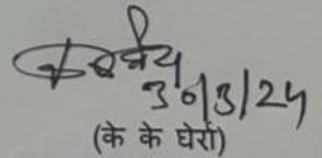 30/3/24
(के के घेरा)